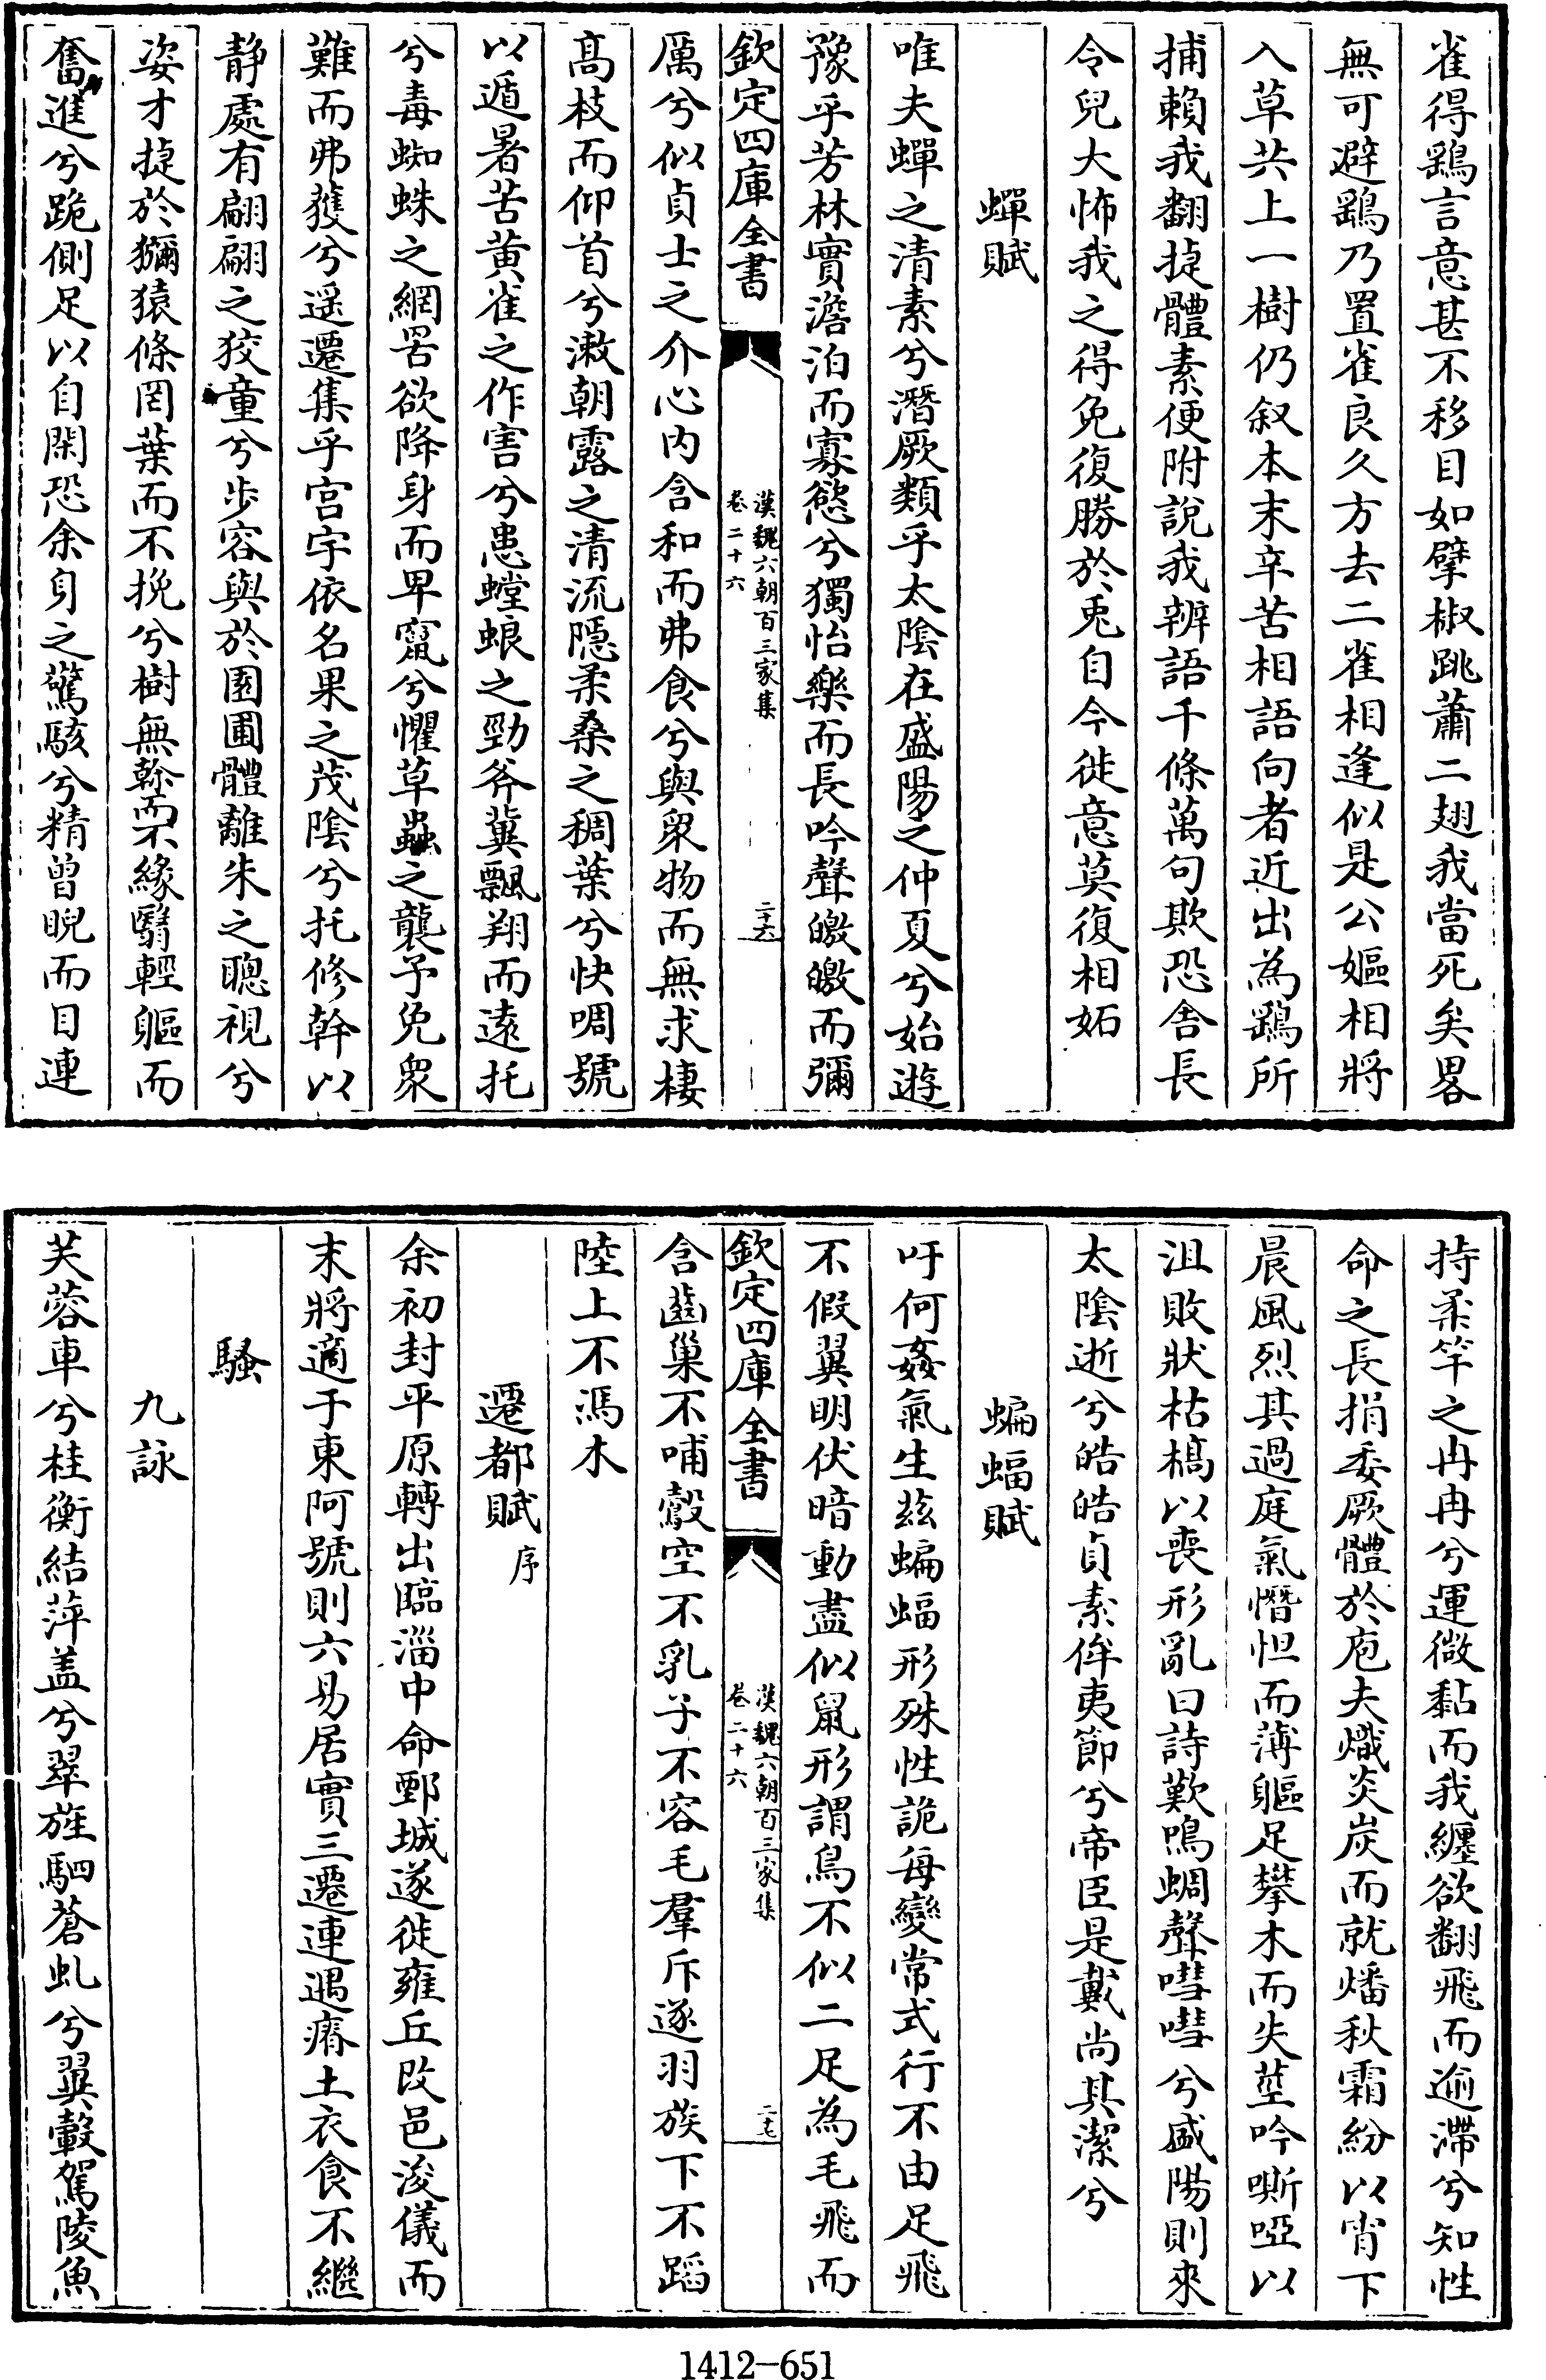 雀得鷂言意甚不移目如擘椒跳蕭二翅我當死矣畧
無可避鷂乃置雀良久方去二雀相逢似是公嫗相將
入草共上一樹仍叙本末辛苦相語向者近出為鷂所
捕賴我翻捷體素便附說我辨語千條萬句欺恐舍長
令兒大怖我之得免復勝於兎自今徙意莫復相妬
蟬賦
唯夫蟬之清素兮潛厥類乎太陰在盛陽之仲夏兮始遊
豫乎芳林實澹泊而寡慾兮獨怡樂而長吟聲皦皦而彌
欽定四庫全書
漢魏六朝百三家集
卷二十六
二十六
厲兮似貞士之介心内含和而弗食兮與衆物而無求棲
髙枝而仰首兮漱朝露之清流隱柔桑之稠葉兮快啁號
以遁暑苦黄雀之作害兮患螳蜋之勁斧冀飄翔而遠托
兮毒蜘蛛之網罟欲降身而卑竄兮懼草蟲之襲予免衆
難而弗獲兮遥遷集乎宫宇依名果之茂隂兮托修幹以
静處有翩翩之狡童兮步容與於園圃體離朱之聰視兮
姿才捷於獼猿條罔葉而不挽兮樹無榦而不緣翳輕軀而
奮進兮跪側足以自閑恐余身之驚駭兮精曾睨而目連
持柔竿之冉冉兮運微黏而我纏欲翻飛而逾滯兮知性
命之長捐委厥體於庖夫熾炎炭而就燔秋霜紛以宵下
晨風烈其過庭氣憯怛而薄軀足攀木而失莖吟嘶啞以
沮敗狀枯槁以喪形亂曰詩歎鳴蜩聲嘒嘒兮盛陽則來
太隂逝兮皓皓貞素侔夷節兮帝臣是戴尚其潔兮
蝙蝠賦
吁何姦氣生茲蝙蝠形殊性詭每變常式行不由足飛
不假翼明伏暗動盡似鼠形謂鳥不似二足為毛飛而
欽定四庫全書
漢魏六朝百三家集
卷二十六
二十七
含齒巢不哺鷇空不乳子不容毛羣斥逐羽族下不蹈
陸上不馮木
遷都賦 序
余初封平原轉出臨淄中命鄄城遂徙雍丘改邑浚儀而
末將適于東阿號則六易居實三遷連遇瘠土衣食不繼
騷
九詠
芙蓉車兮桂衡結萍盖兮翠旌駟蒼虬兮翼轂駕陵魚
1412-651